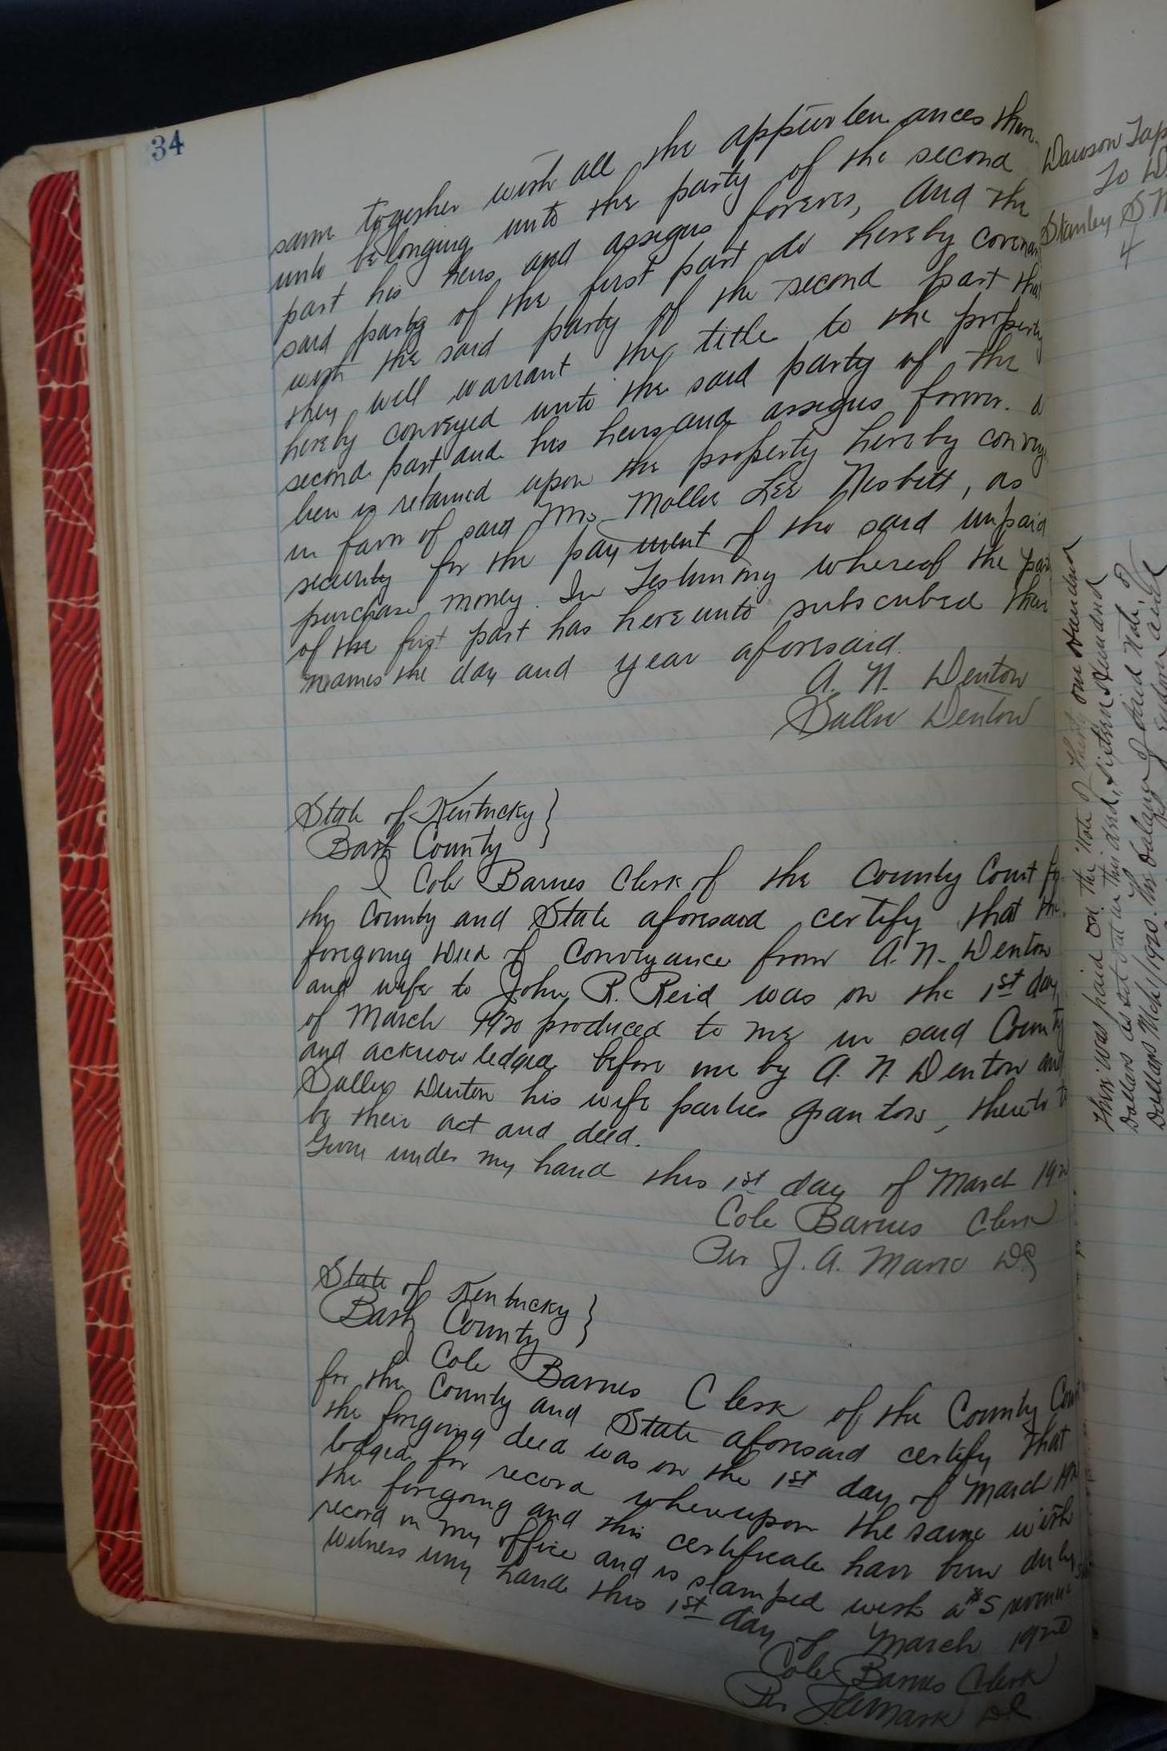 34
same together with all the appurtenances there
unto belonging unto the party of the second
part his heirs and assigns forever, And the
said party of the first part do hereby covenan
with the said party of the second part that
they will warrant the title to the property
hereby conveyed unto the said party of the
second part and his heirs and assigns forever. a
lien is retained upon the property hereby convey
in favor of said Mrs Mollie Lee Nesbitt, as
security for the payment of the said unpaid
purchase money. In Testimony whereof the par
of the first part has hereunto subscribed their
names the day and year aforesaid.
A. N. Denton
Sallie Denton
State of Kentucky }
Bath County
I Cole Barnes Clerk of the County Court for
the County and State aforesaid certify that the
foregoing Deed of Conveyance from A. N. Denton
and wife to John R. Reid was on the 1st day
of March 1920 produced to me in said County
and acknowledged before me by A. N. Denton and
Sallie Denton his wife parties grantors, thereto to
be their act and deed.
Given under my hand this 1st day of March 192
Cole Barnes Clerk
Per J. A. Mark DC
State of Kentucky }
Bath County
I Cole Barnes Clerk of the County Cour
for the County and State aforesaid certify that
the foregoing deed was on the 1st day of March 192
lodged for record whereupon the same with
the foregoing and this certificate have been duly
record in my office and is stamped with a $5 revenue
witness my hand this 1st day of March 1920
Cole Barnes Clerk
Per J A Mark DC.
Dawson Tap
To D
Stanley S
4
this was paid on the note of thirty one hundred
Dollars as set out in this deed, sixteen hundred
Dollars Mch 1, 1920. the balance of said note, of